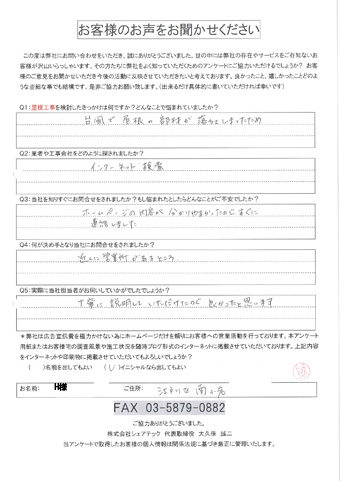 お客様のお声をお聞かせください
この度は弊社にお問い合わせをいただき、誠にありがとうございました。世の中には弊社の存在やサービスをご存知ないお
客様が沢山いらっしゃいます。その方たちに弊社をよく知っていただくためのアンケートにご協力いただけるでしょうか？ お客
様のご意見をお聞かせいただき今後の活動に反映させていただきたいと考えております。良かったこと、嬉しかったことどのよ
うな些細な事でも結構です、是非ご協力お願い致します。（出来るだけ具体的に書いていただければ幸いです）
Q1：屋根工事を検討したきっかけは何ですか？どんなことで悩まれていましたか？
台風で屋根の部材が落ちてしまったため
Q2：業者や工事会社をどのように探されましたか？
インターネット検索
Q3：当社を知りすぐにお問合せをされましたか？もし悩まれたとしたらどんなことがご不安でしたか？
ホームページの内容が分かりやすかったのですぐに
連絡しました
Q4：何が決め手となり当社にお問合せをされましたか？
近くに営業所があるところ
Q5：実際に当社担当者がお伺いしていかがでしたでしょうか？
丁寧に説明していただけたので良かったと思います
＊弊社は広告宣伝費を極力かけない為にホームページだけを頼りにお客様への営業活動を行っております。本アンケート
用紙またはお客様宅の調査風景や施工状況を随時ブログ形式のインターネットに掲載させていただいております。上記内容
をインターネットや印刷物に掲載させていただいてもよろしいでしょうか？
（ ）名前を出してもよい （✓）イニシャルなら出してもよい
お名前： H様 ご住所： 江戸川区南小岩
FAX 03-5879-0882
ご協力ありがとうございました。
株式会社シェアテック 代表取締役 大久保 誠二
当アンケートで取得したお客様の個人情報は関係法規に基づき厳正に管理いたします。